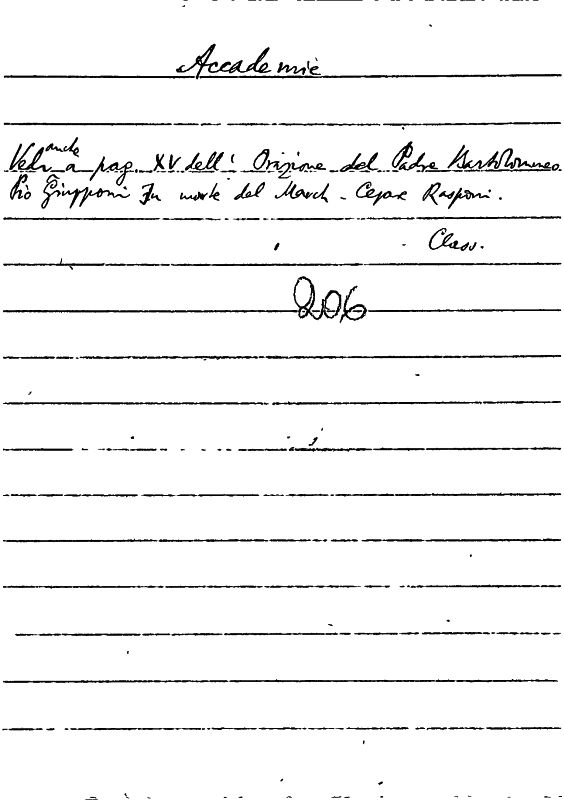 Accademie
Vedi anche a pag. XV dell' Orazione del Padre Bartolomeo
Pio Giupponi In morte del March. Cesare Rasponi.
Class.
206